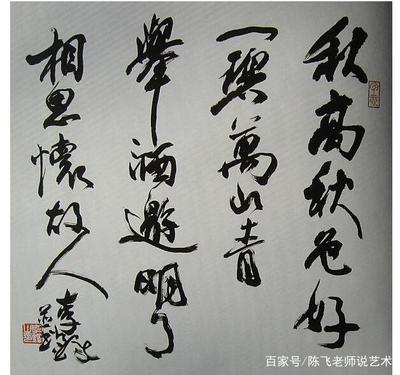 秋高秋色好
一碧萬山青
舉酒邀明月
相思懷故人
李鐸
百家号/陈飞老师说艺术